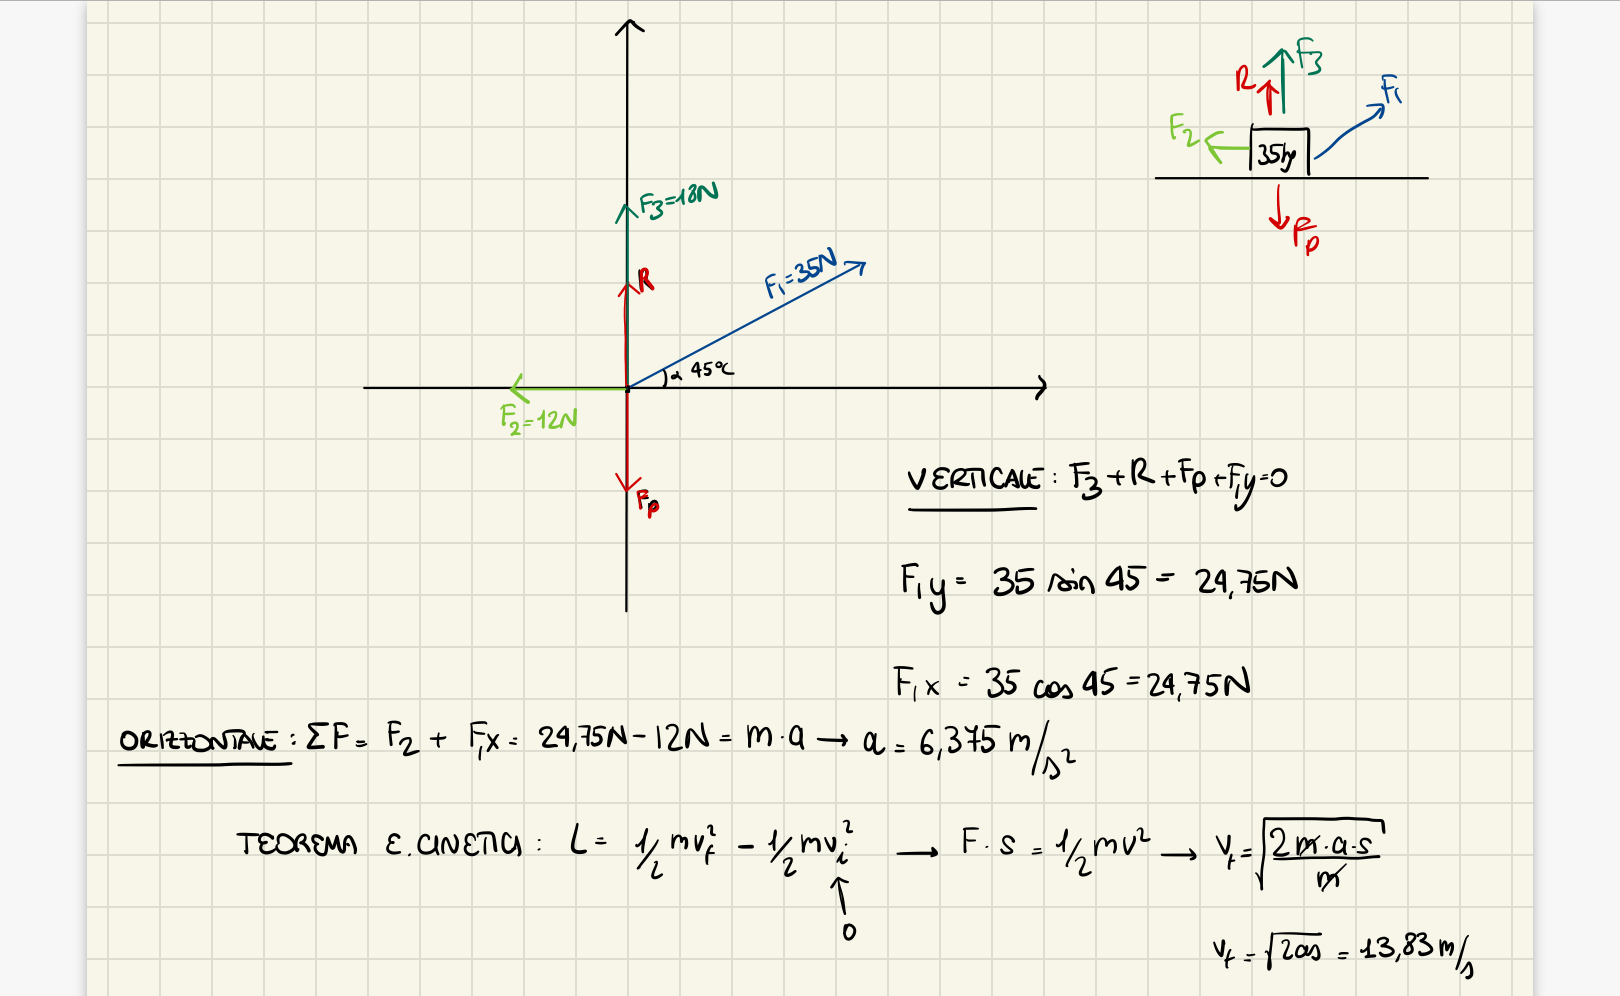 F3
R
F1
F2
35kg
Fp
F3=18N
R
F1=35N
α 45°C
F2=12N
Fp
VERTICALE: F3+R+Fp+F1y=0
F1y= 35 sin 45 = 24,75N
F1x = 35 cos 45 = 24,75N
ORIZZONTALE: ΣF= F2 + F1x= 24,75N - 12N = m·a → a = 6,375 m/s²
TEOREMA E.CINETICA: L= 1/2 mvf² - 1/2 mvi² → F·s = 1/2 mv² → vf=√(2m·a·s/m)
0
vf = √2as = 13,83 m/s